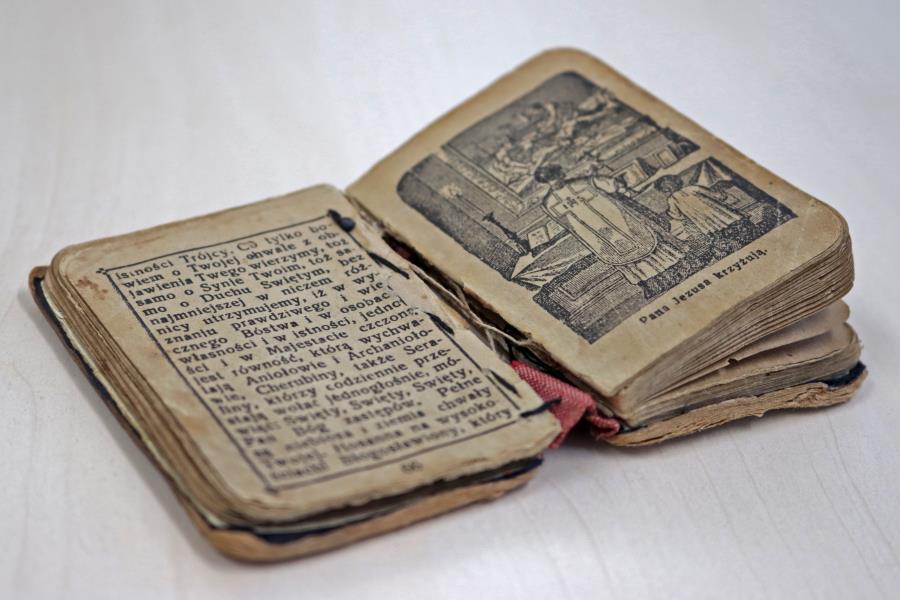 istności Trójcy. Co tylko bo-
wiem o Twojej chwale z ob-
jawienia Twego wierzymy, toż
samo o Synie Twoim, toż sa-
mo o Duchu Świętym bez
najmniejszej w niczem róż-
nicy utrzymujemy, iż w wy-
znaniu prawdziwego i wie-
cznego Bóstwa i w osobac
własności i w istności, jedno
ści i w Majestacie czczona
jest równość, którą wychwa-
lają Aniołowie i Archanioło-
wie, Cherubiny, także Sera-
finy, którzy codziennie prze-
stają wołać jednogłośnie, mó-
wiąc: Święty, Święty, Święty,
Pan Bóg zastępów. Pełne
są niebiosa i ziemia chwały
Twojej. Hosanna na wysoko-
ściach! Błogosławiony, który
Pana Jezusa krzyżują.